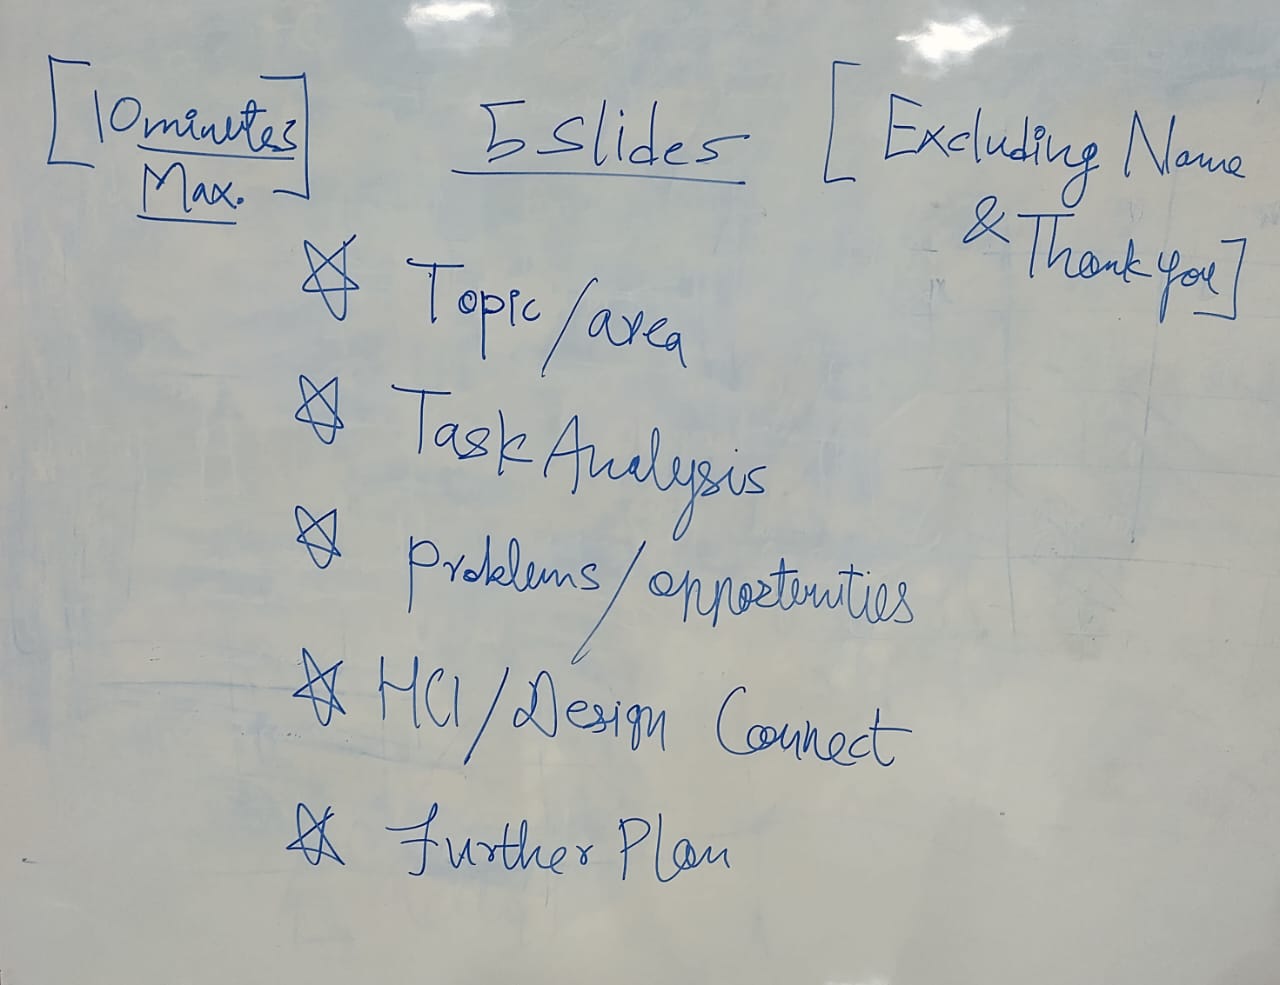 [10 minutes
Max.]
5 Slides
[Excluding Name
& Thank you]
☆ Topic/area
☆ Task Analysis
☆ Problems/opportunities
☆ HCI/Design Connect
☆ Further Plan